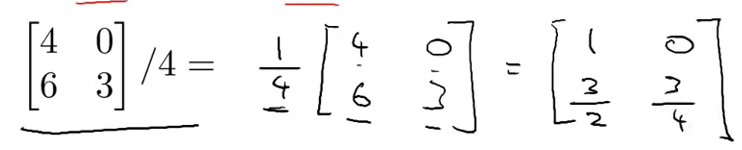 [4 0
6 3] /4 = 1/4 [4 0
6 3] = [1 0
3/2 3/4]